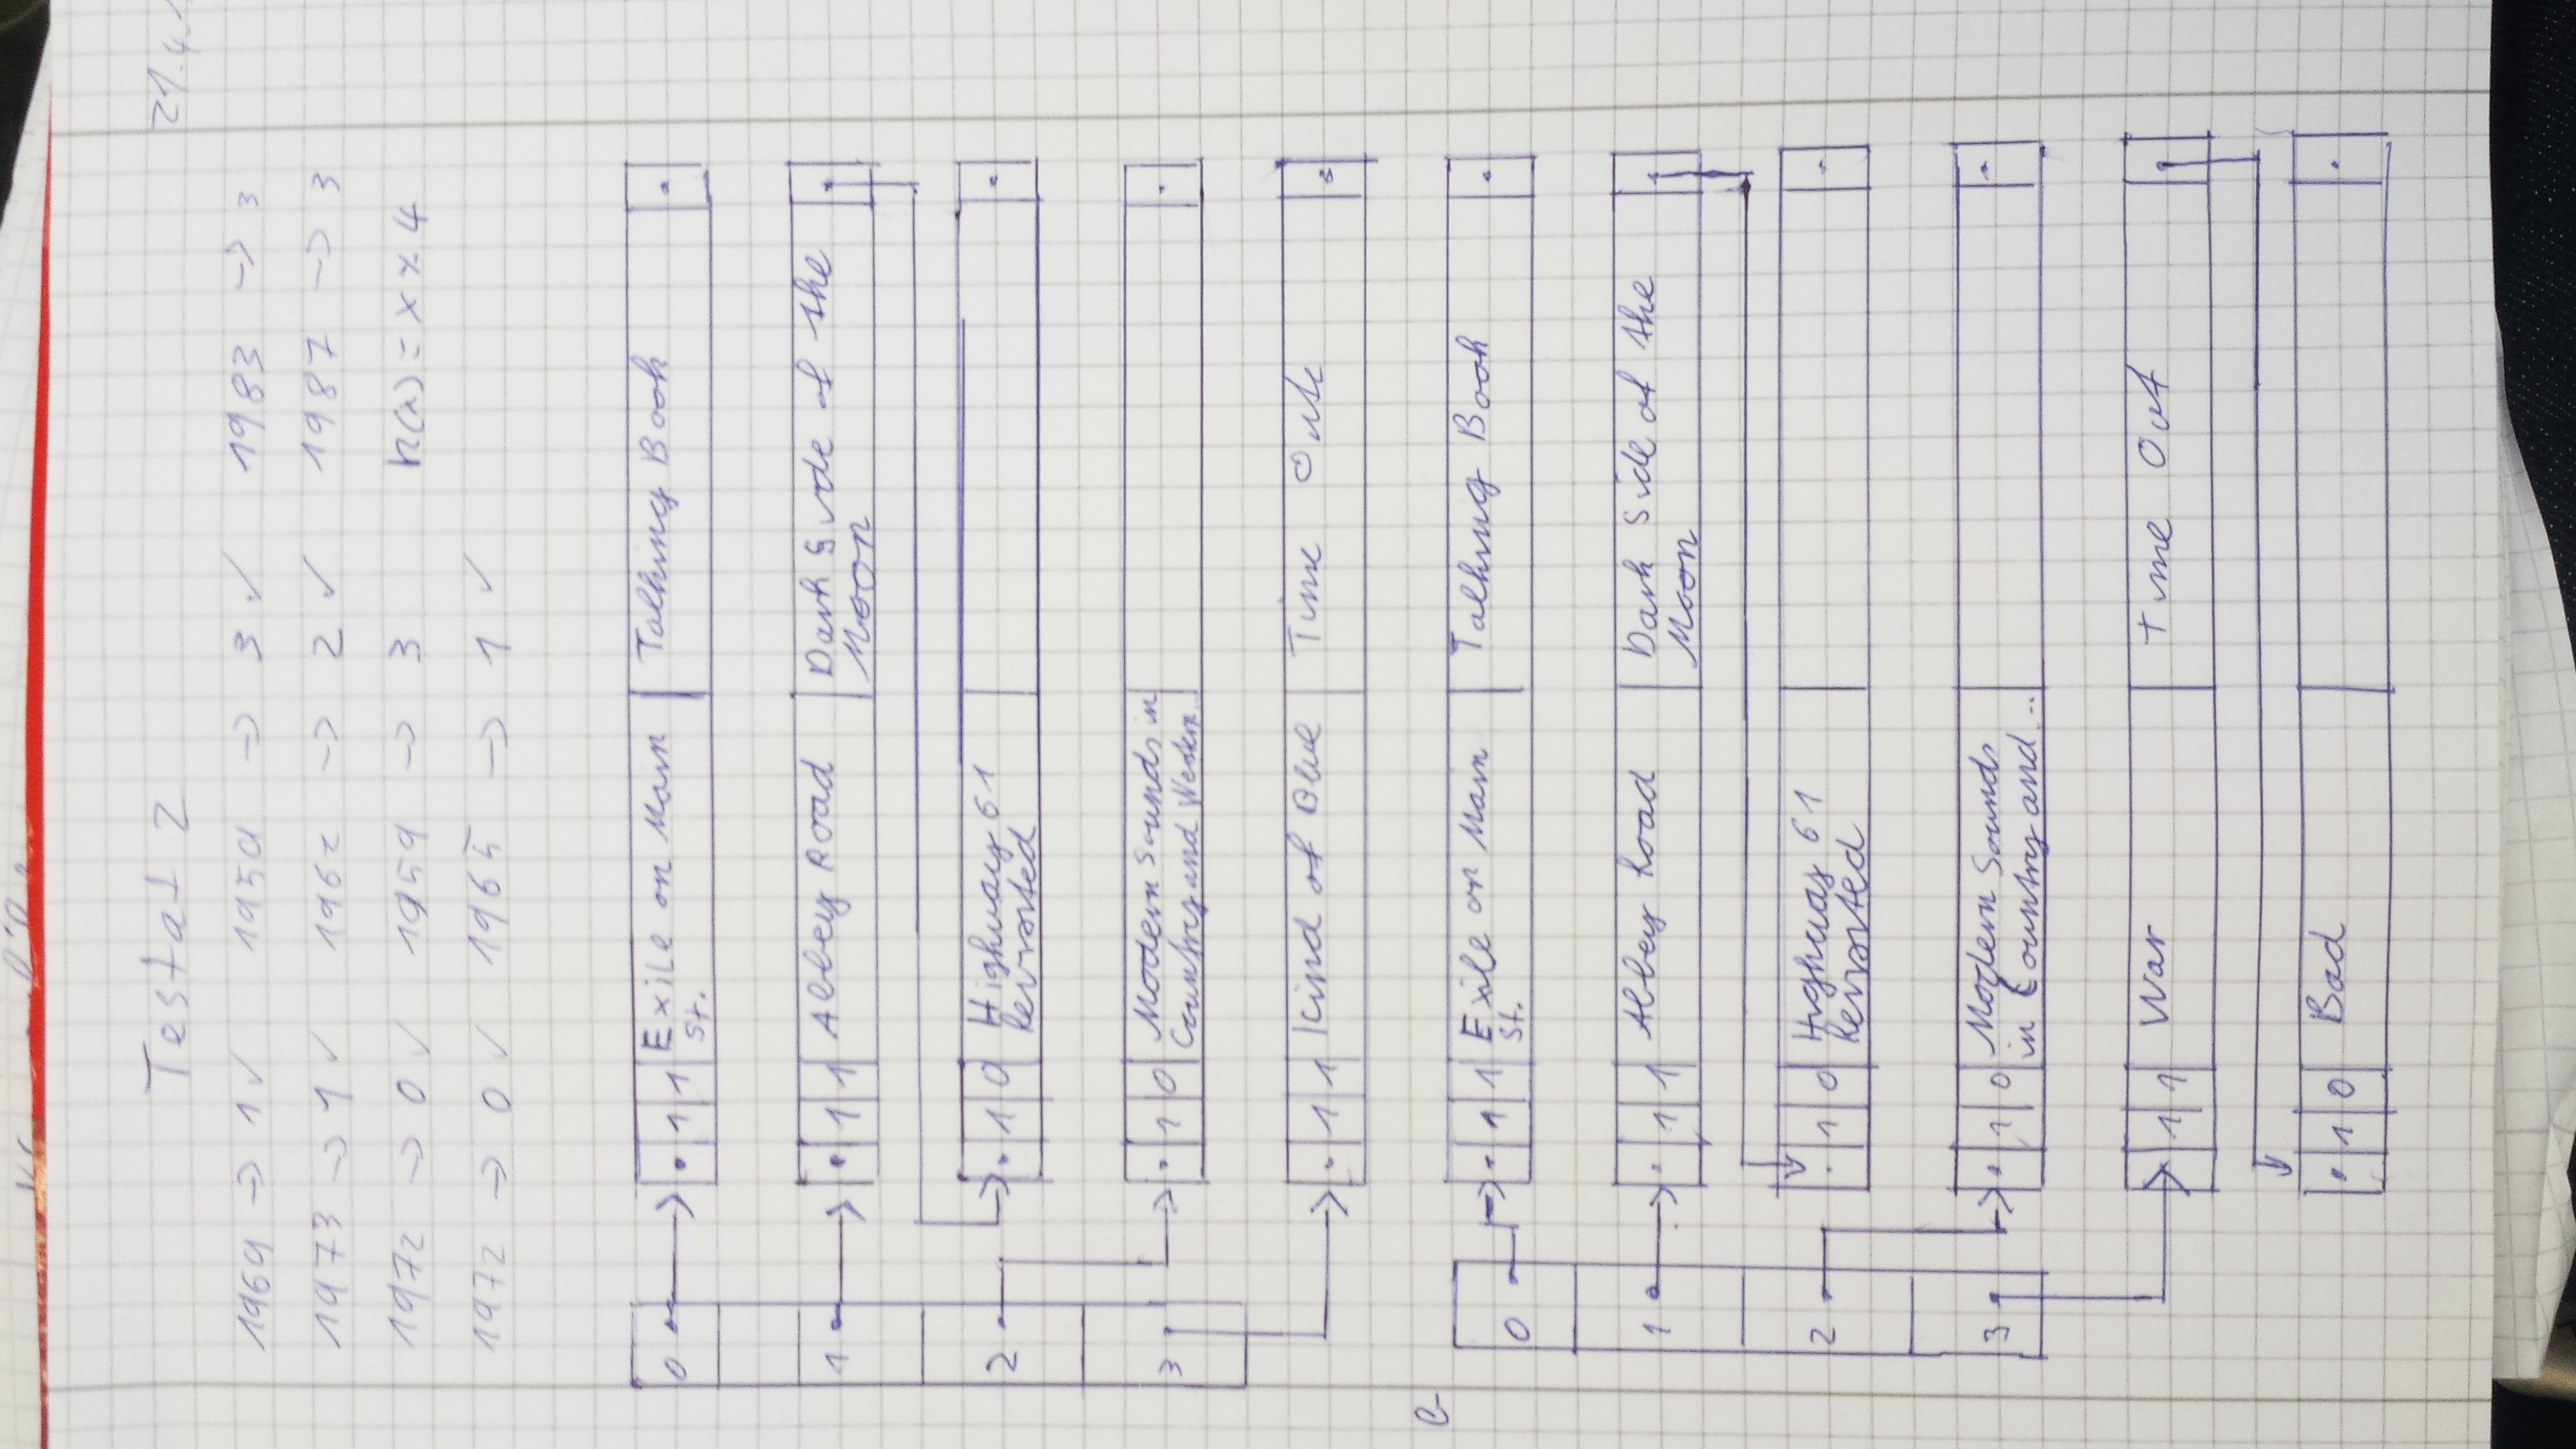 Testat 2
21.4.1
1969 -> 1 ✓ 1959 -> 3 ✓ 1983 -> 3
1973 -> 1 ✓ 1962 -> 2 ✓ 1987 -> 3
1972 -> 0 ✓ 1959 -> 3 h(x) = x % 4
1972 -> 0 ✓ 1965 -> 1 ✓
0 1 1 Exile on Main Talking Book
St.
1 1 1 Abbey Road Dark Side of the
Moon
2 1 0 Highway 61
Revisited
3 1 0 Modern Sounds in
Country and Western...
1 1 Kind of Blue Time Out
0 1 1 Exile on Main Talking Book
St.
1 1 1 Abbey Road Dark Side of the
Moon
2 1 0 Highway 61
Revisited
3 1 0 Modern Sounds
in Country and...
1 1 War Time Out
1 0 Bad